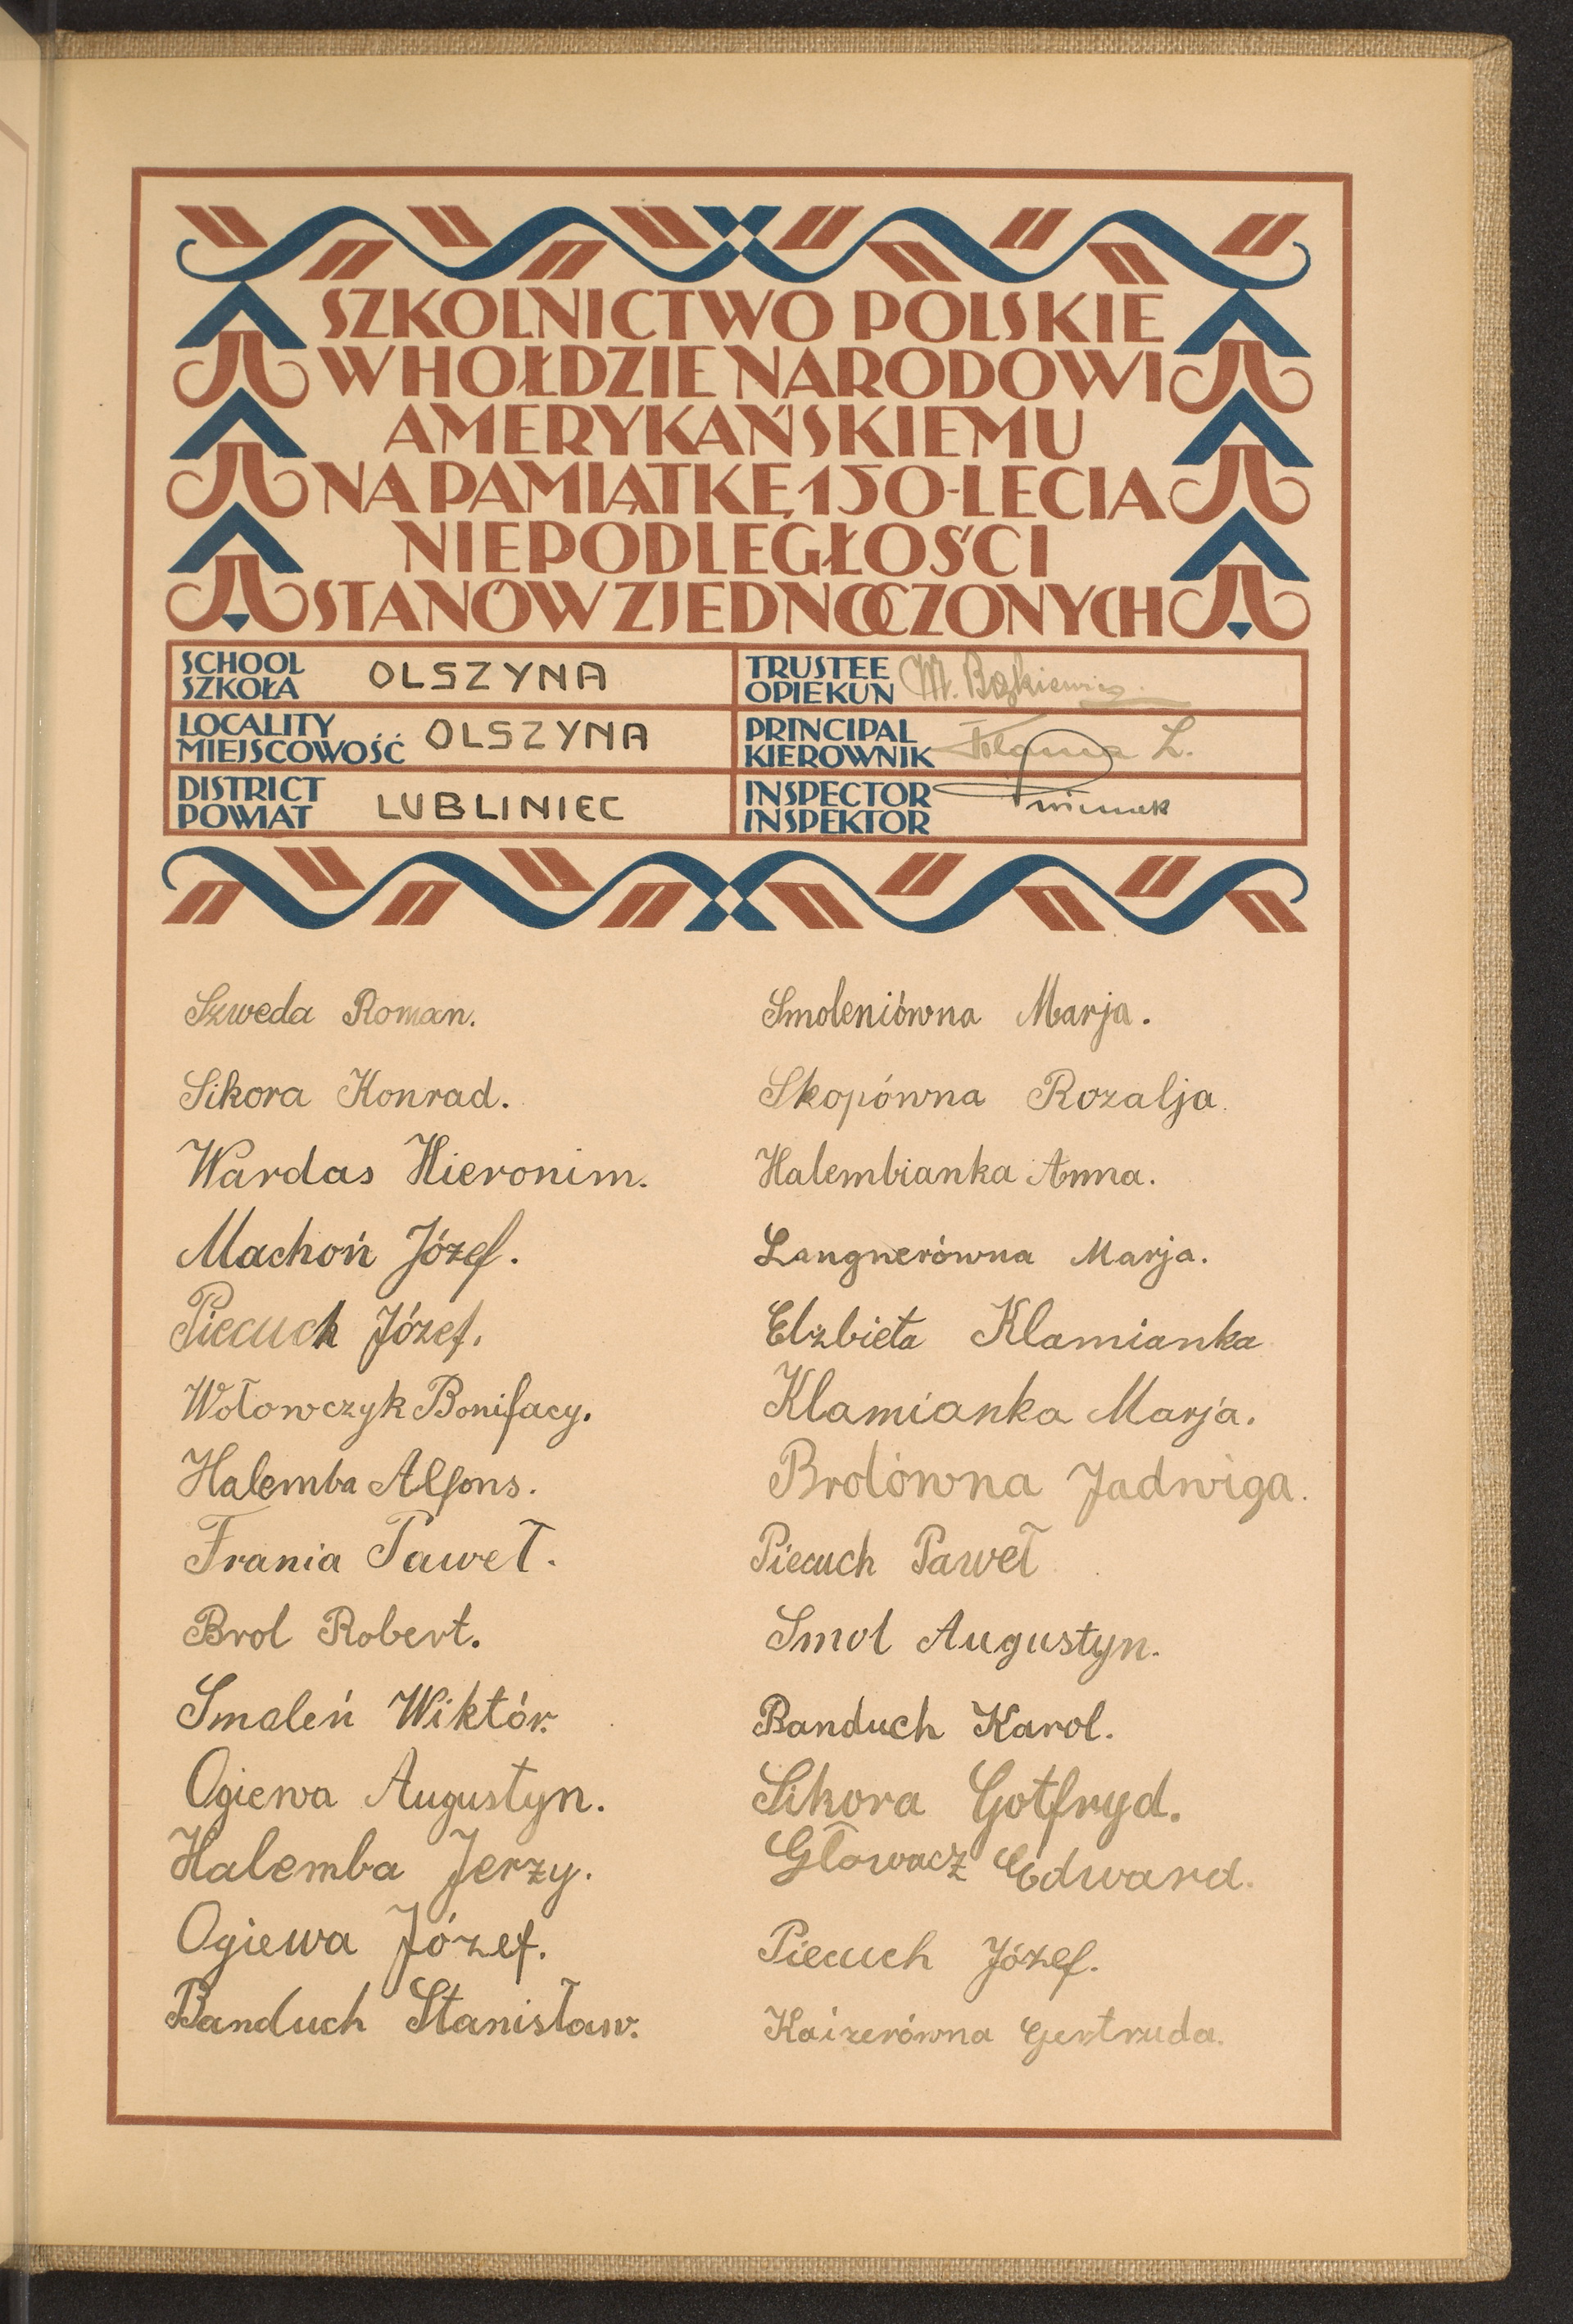 SZKOLNICTWO POLSKIE
W HOŁDZIE NARODOWI
AMERYKAŃSKIEMU
NA PAMIĄTKĘ 150-LECIA
NIEPODLEGŁOŚCI
STANÓW ZJEDNOCZONYCH
SCHOOL
SZKOŁA
OLSZYNA
TRUSTEE
OPIEKUN
M.
LOCALITY
MIEJSCOWOŚĆ
OLSZYNA
PRINCIPAL
KIEROWNIK
L.
DISTRICT
POWIAT
LUBLINIEC
INSPECTOR
INSPEKTOR
Szweda Roman.
Sikora Konrad.
Wardas Hieronim.
Machoń Józef.
Piecuch Józef.
Wołowczyk Bonifacy.
Halemba Alfons.
Frania Paweł.
Brol Robert.
Smoleń Wiktór.
Ogiewa Augustyn.
Halemba Jerzy.
Ogiewa Józef.
Banduch Stanisław.
Smoleniówna Marja.
Skopówna Rozalja.
Halembianka Anna.
Langnerówna Marja.
Elzbieta Klamianka
Klamianka Marja.
Brolówna Jadwiga.
Piecuch Paweł
Smol Augustyn.
Banduch Karol.
Sikora Gotfryd.
Głowacz Edward.
Piecuch Józef.
Kaizerówna Gertruda.